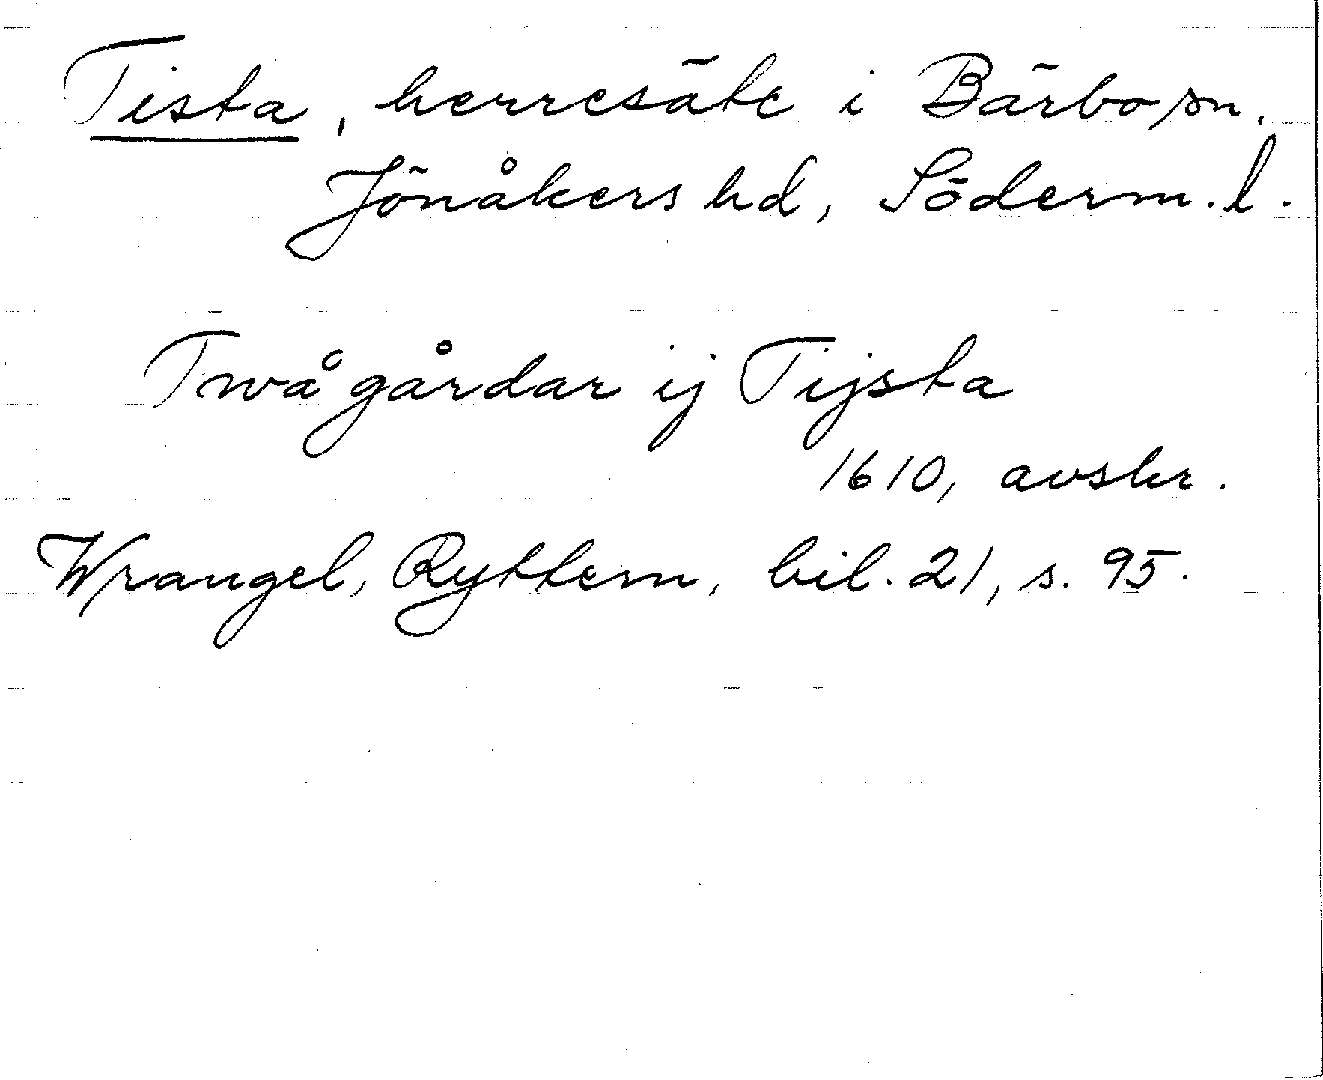 Tista, herresäte i Bärbo sn.
Jönåkers hd, Söderm. l.
Twå gårdar ij Tijsta
1610, avskr.
Wrangel, Ryttern, bil. 21, s. 95.